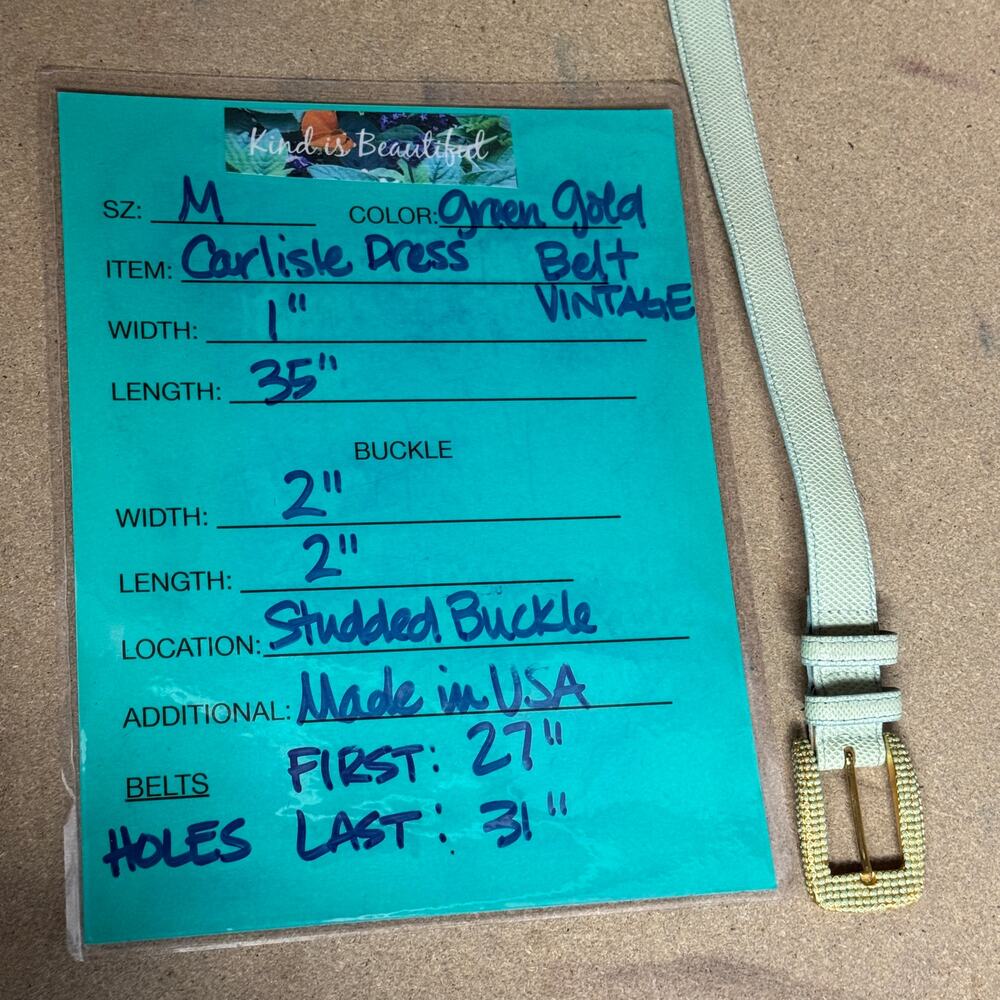 Kind is Beautiful
SZ: M COLOR: Green Gold
ITEM: Carlisle Dress Belt
VINTAGE
WIDTH: 1"
LENGTH: 35"
BUCKLE
WIDTH: 2"
LENGTH: 2"
LOCATION: Studded Buckle
ADDITIONAL: Made in USA
BELTS FIRST: 27"
HOLES LAST: 31"